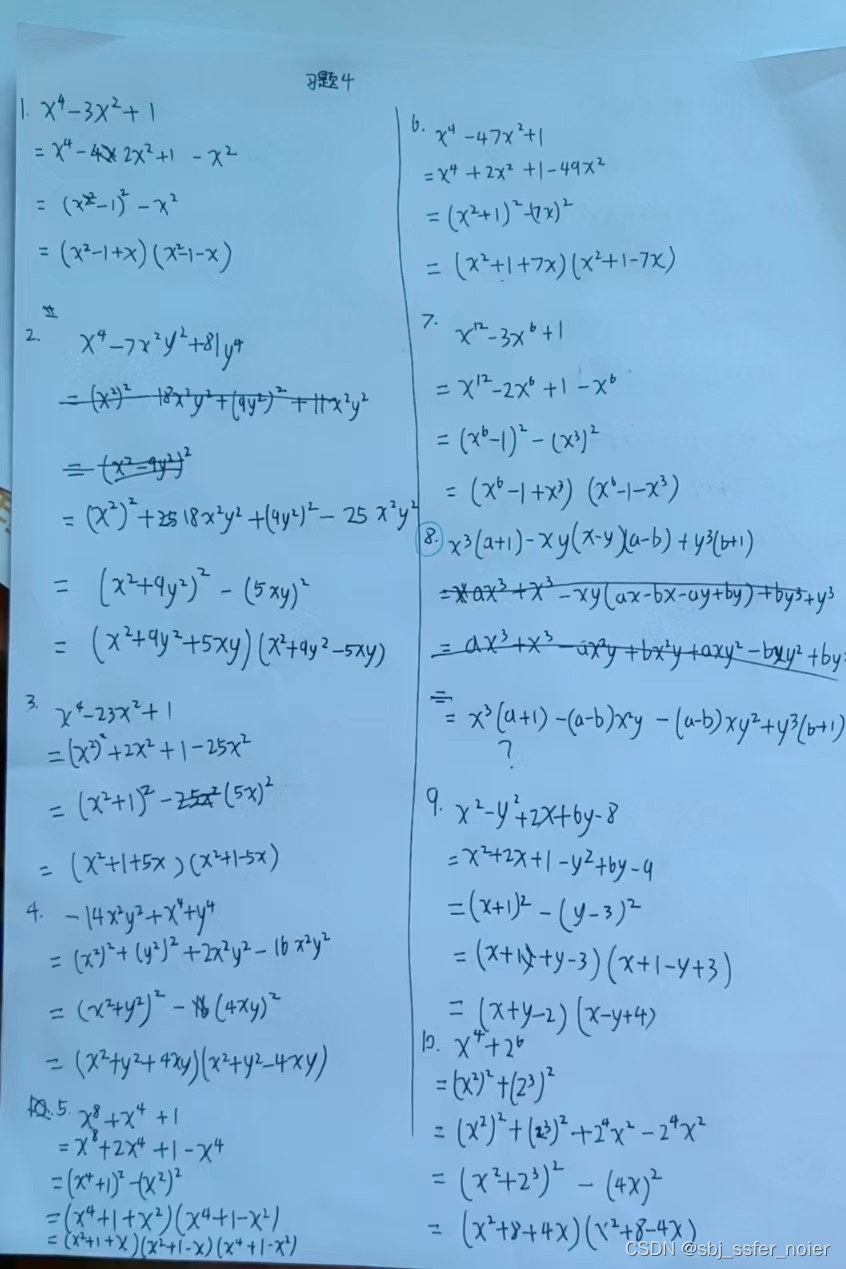 习题4
1. x⁴-3x²+1
= x⁴-4x 2x²+1 -x²
= (x²-1)²-x²
= (x²-1+x)(x²-1-x)
2. x⁴-7x²y²+81y⁴
= (x²)² 18x²y²+(9y²)²+11x²y²
= (x²-9y²)²
= (x²)²+25 18x²y²+(9y²)²-25x²y²
= (x²+9y²)²-(5xy)²
= (x²+9y²+5xy)(x²+9y²-5xy)
3. x⁴-23x²+1
= (x²)²+2x²+1-25x²
= (x²+1)²-25x²(5x)²
= (x²+1+5x)(x²+1-5x)
4. -14x²y²+x⁴+y⁴
= (x²)²+(y²)²+2x²y²-16x²y²
= (x²+y²)²-16(4xy)²
= (x²+y²+4xy)(x²+y²-4xy)
5. x⁸+x⁴+1
= x⁸+2x⁴+1-x⁴
= (x⁴+1)²-(x²)²
= (x⁴+1+x²)(x⁴+1-x²)
= (x²+1+x)(x²+1-x)(x⁴+1-x²)
6. x⁴-47x²+1
= x⁴+2x²+1-49x²
= (x²+1)²-(7x)²
= (x²+1+7x)(x²+1-7x)
7. x¹²-3x⁶+1
= x¹²-2x⁶+1-x⁶
= (x⁶-1)²-(x³)²
= (x⁶-1+x³)(x⁶-1-x³)
8. x³(a+1)-xy(x-y)(a-b)+y³(b+1)
= ax³+x³-xy(ax-bx-ay+by)+by³+y³
= ax³+x³-ax²y+bx²y+axy²-bxy²+by
=
= x³(a+1)-(a-b)x²y-(a-b)xy²+y³(b+1)
?
9. x²-y²+2x+6y-8
= x²+2x+1-y²+6y-9
= (x+1)²-(y-3)²
= (x+1+y-3)(x+1-y+3)
= (x+y-2)(x-y+4)
10. x⁴+2⁶
= (x²)²+(2³)²
= (x²)²+(2³)²+2⁴x²-2⁴x²
= (x²+2³)²-(4x)²
= (x²+8+4x)(x²+8-4x)
CSDN @sbj_ssfer_noier